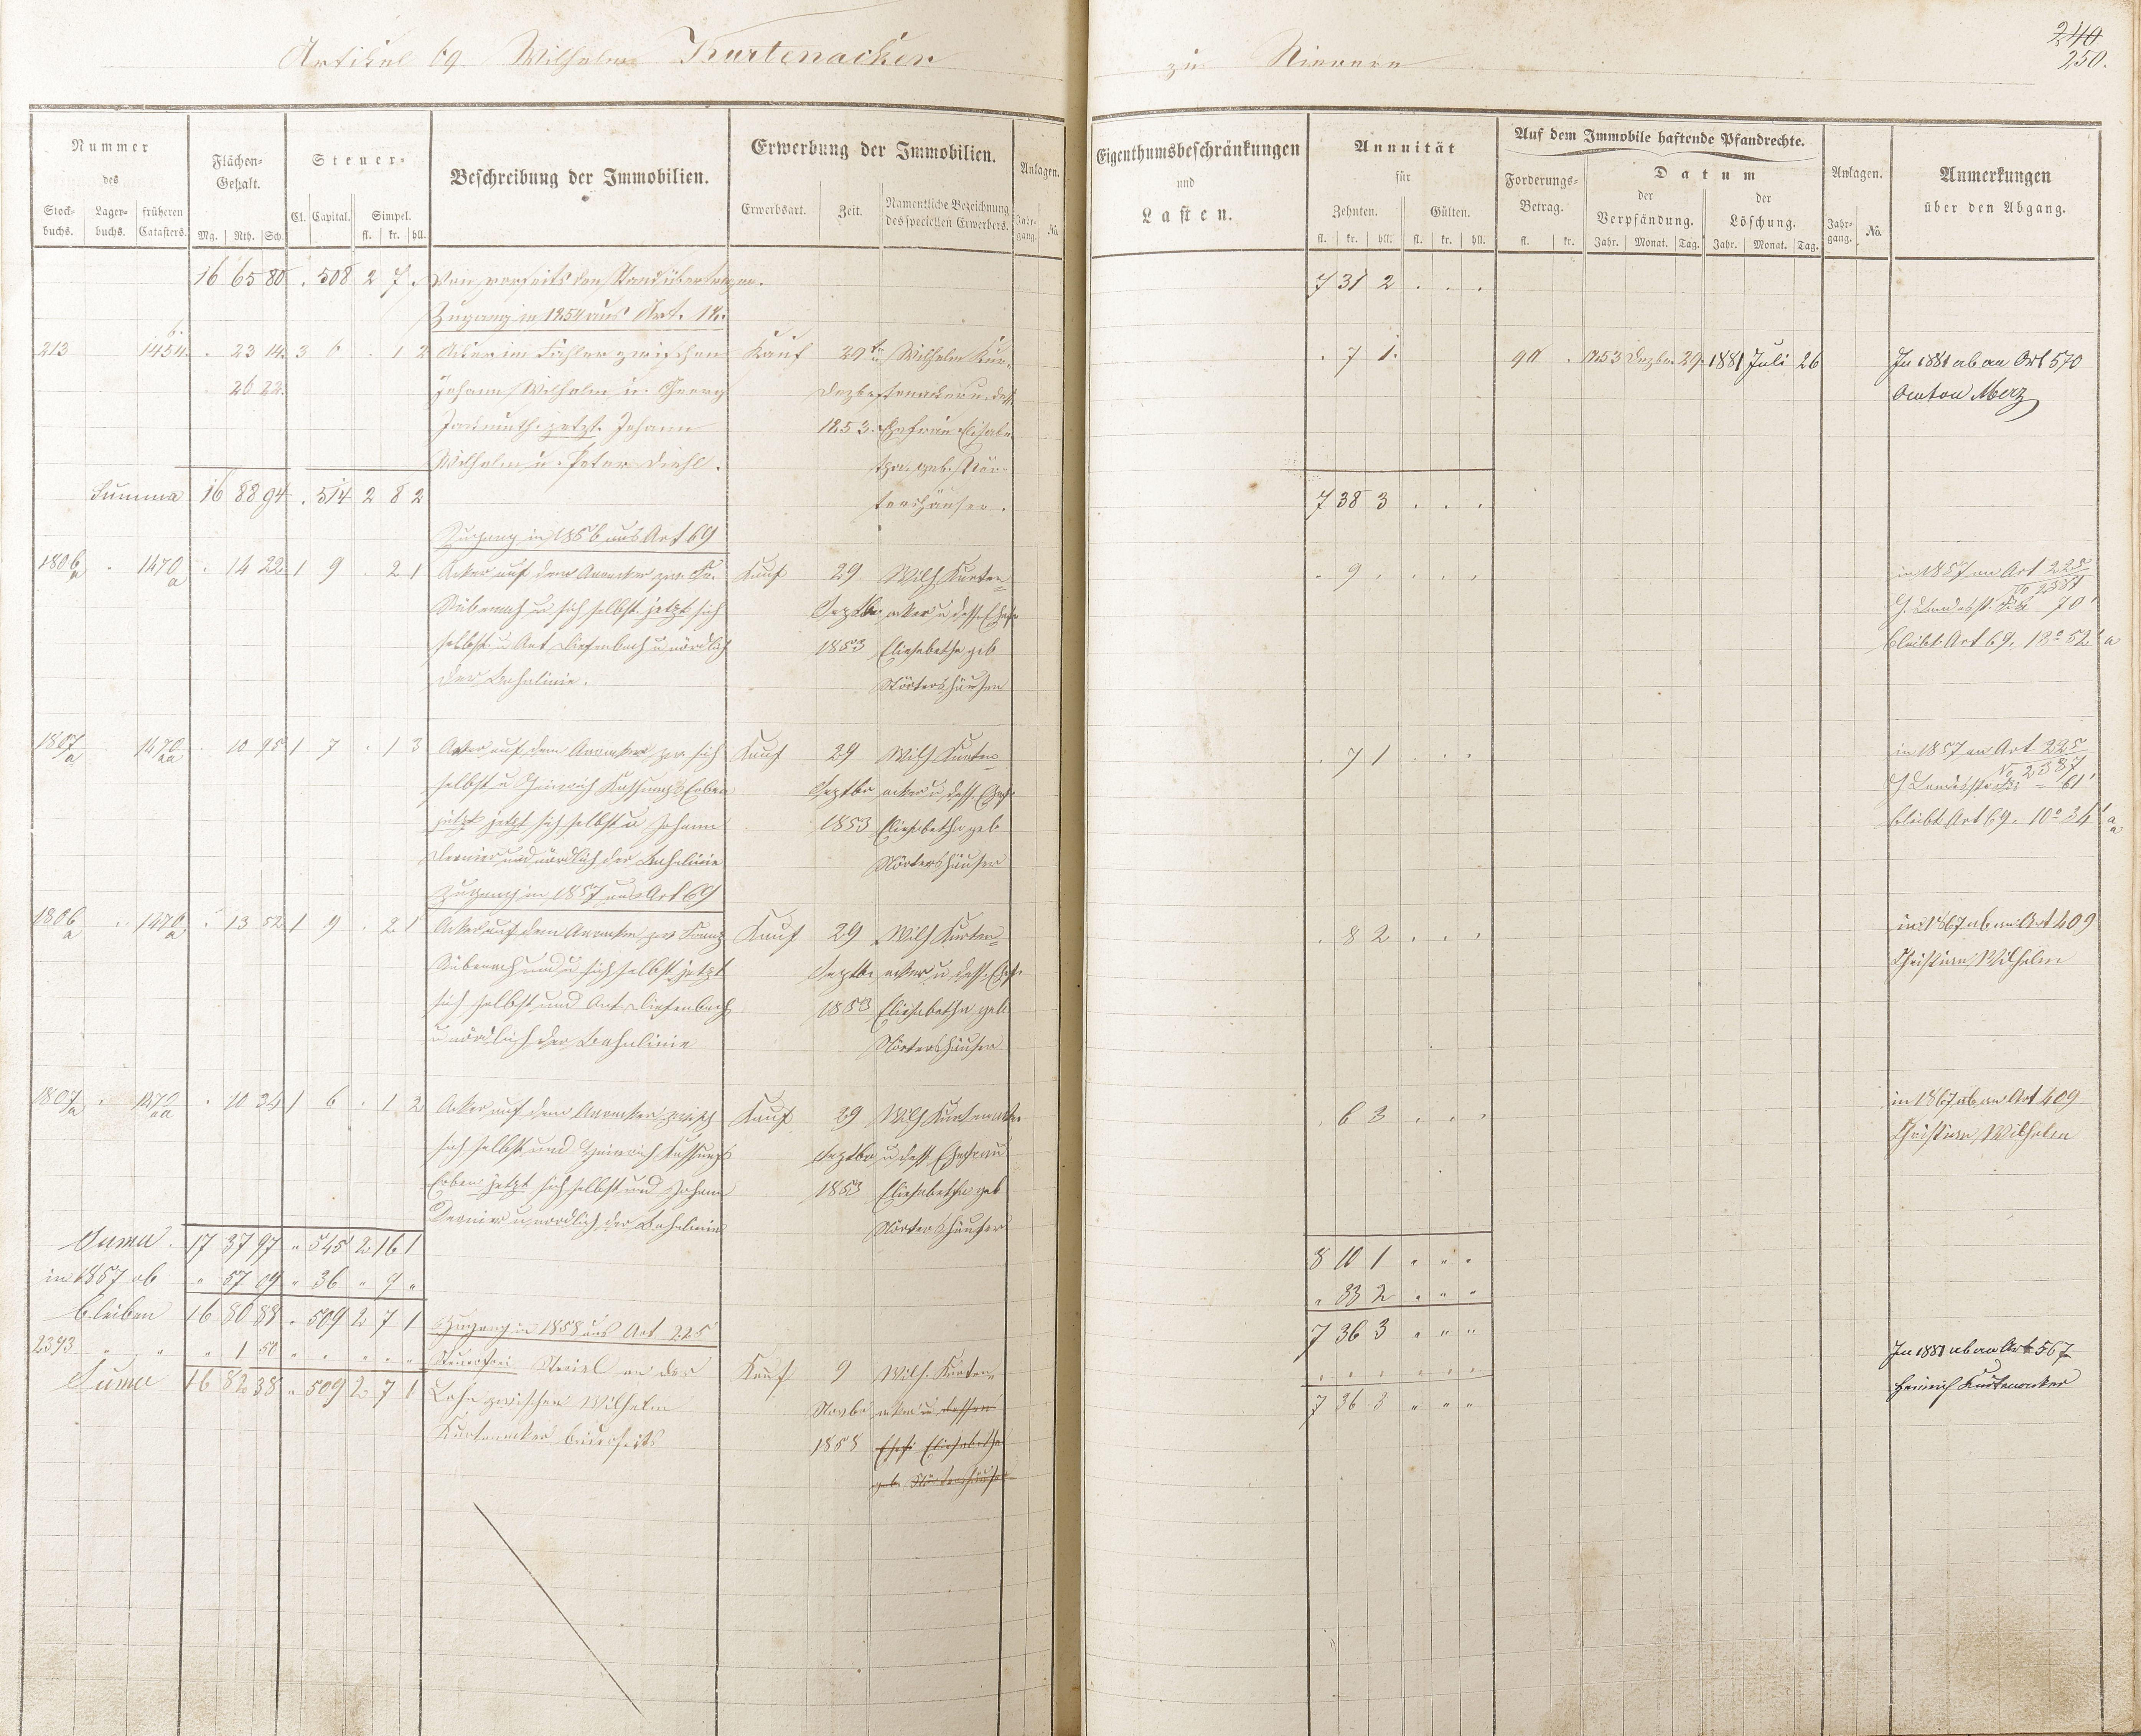 Artikel 69. Wilhelm Kurtenacker
zu Nievern
240
250.
Nummer
des
Stock-
buchs.
Lager-
buchs.
früheren
Catasters.
Flächen-
Gehalt.
Mg. Rth. Sch.
Steuer-
Cl. Capital. Simpel.
fl. kr. hll.
Beschreibung der Immobilien.
Erwerbung der Immobilien.
Erwerbsart. Zeit.
Namentliche Bezeichnung
des speciellen Erwerbers.
Anlagen.
Jahr-
gang. No.
Eigenthumsbeschränkungen
und
Lasten.
Annuität
für
Zehnten. Gülten.
fl. kr. hll. fl. kr. hll.
Auf dem Immobile haftende Pfandrechte.
Forderungs-
Betrag.
fl. kr.
Datum
der
Verpfändung.
Jahr. Monat. Tag.
der
Löschung.
Jahr. Monat. Tag.
Anlagen.
Jahr-
gang. No.
Anmerkungen
über den Abgang.
16 65 80 . 508 2 7 . 7 31 2 . . .
Zugang in 1854 aus Art. 12.
213 1454. . 23 14. 3 6 . 1 2 Acker im zwischen Kauf 29 Wilhelm Kur- . 7 1. 1853 Dezbr. 29. 1881 Juli 26 In 1881 ab an Art 570
26 22. Johann Wilhelm u. Georg Dezbr tenacker u. dess. Anton Merz
jetzt Johann 1853. Ehefrau Elisabe-
Wilhelm u. Peter Diehl. tha. geb. Nör-
Summa 16 88 94 . 514 2 8 2 tershäuser. 7 38 3 . . .
Zugang in 1856 aus Art 69
1806 a . 1470 a . 14 22 1 9 . 2 1 Acker auf dem Kauf 29 Wilh Kurten= . 9 . . . . in 1857 an Art 225
u sich selbst jetzt sich Septbr acker u dess. Ehefr No 2387
70'
selbst u Ant Diefenbach u nördlich 1853 Eliesabetha geb bleibt Art 69. 13° 52' a
der Bahnlinie. Nörtershäuser
1807 a 1470 aa . 10 95 1 7 . 1 3 Acker auf dem sich Kauf 29 Wilh Kurten= . 7 1 . . . in 1857 an Art 225
selbst u Heinrich Erben Septbr acker u dess. Ehefr No 2387
61'
jetzt jetzt sich selbst u Johann 1853 Eliesabetha geb bleibt Art 69. 10° 34' aa
und nördlich der Bahnlinie Nörtershäuser
Zugang in 1857 aus Art 69
1806 a 1470 a . 13 52 1 9 . 2 1 Acker auf dem Kauf 29 Wilh Kurten= . 8 2 . . . in 1867 ab an Art 409
u sich selbst jetzt Septbr acker u dess. Ehefr Christian Wilhelm
sich selbst und Ant Diefenbach 1853 Eliesabetha geb
u nördlich der Bahnlinie Nörtershäuser
1807 a 1470 aa . 10 34 1 6 . 1 2 Acker auf dem zwisch Kauf 29 Wilh Kurtenacker . 6 3 . . . in 1867 ab an Art 409
sich selbst und Heinrich Septbr u dess Ehefrau Christian Wilhelm
Erben jetzt sich selbst und Johann 1853 Eliesabetha geb
u nördlich der Bahnlinie Nörtershäuser
Suma. 17 37 97 " 545 2 16 1 8 10 1 " " "
in 1857 ab " 57 09 " 36 " 9 " " 33 2 " " "
bleiben 16 80 88 . 509 2 7 1 Zugang in 1858 aus Art 225 7 36 3 " " "
2393 " " " 1 50 " . " " " Steuerfrei an der Kauf 9 Wilh. Kurten= . . . . . . In 1881 ab an Art 567
Suma 16 82 38 " 509 2 7 1 Lahn zwischen Wilhelm Novbr acker u dessen 7 36 3 " " " Heinrich Kurtenacker
Kurtenacker beiderseits 1858 Ehefr Eliesabetha
geb. Nörtershäuser